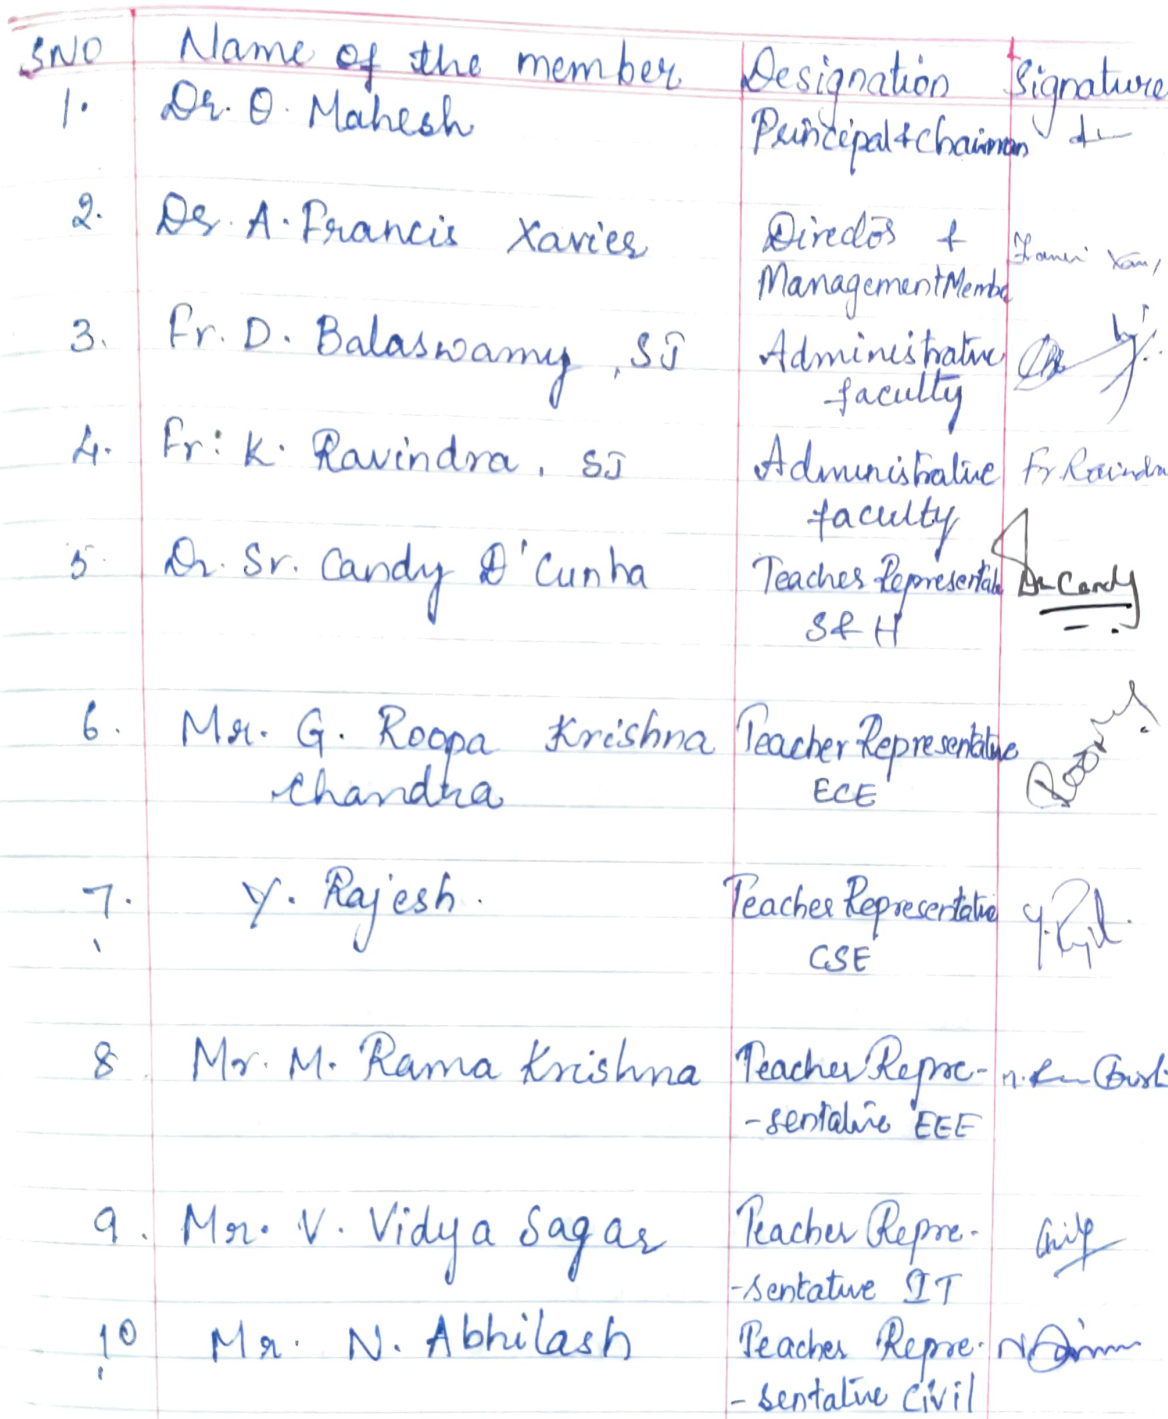 SNO Name of the member Designation Signature
1. Dr. O. Mahesh Principal & Chairman
2. Dr. A. Francis Xavier Director &
Management Membe
3. Fr. D. Balaswamy, SJ Administrative
faculty
4. Fr: K. Ravindra, SJ Administrative Fr Ravindra
faculty
5 Dr. Sr. Candy D'Cunha Teacher Representative Dr Candy
S & H
6. Mr. G. Roopa Krishna Teacher Representative
Chandra ECE
7. Y. Rajesh. Teacher Representative
CSE
8 Mr. M. Rama Krishna Teacher Repre-
-sentative EEE
9. Mr. V. Vidya Sagar Teacher Repre-
-sentative IT
10 Mr. N. Abhilash Teacher Repre-
-sentative Civil